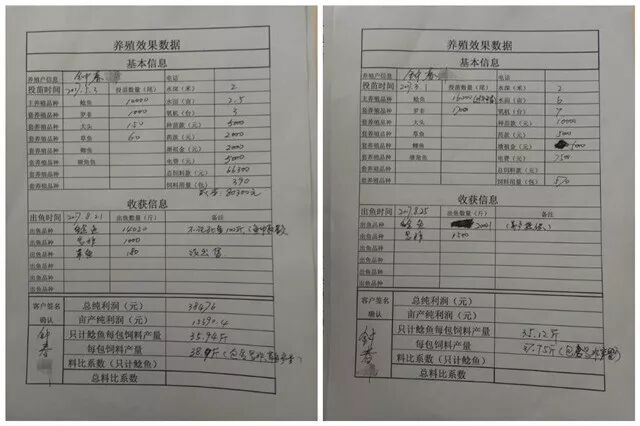 养殖效果数据
基本信息
养殖户信息 钟春 电话
投苗时间 2017.5.3 投苗数量（尾） 水深（米） 2
主养殖品种 鲶鱼 10000 水面（亩） 2.5
套养殖品种 罗非 1000 氧机（台） 3
套养殖品种 大头 150 种苗款（元） 5000
套养殖品种 草鱼 60 药款（元） 2000
套养殖品种 鲫鱼 塘租金（元） 2000
套养殖品种 塘角鱼 电费（元） 5000
套养殖品种 总饲料款（元） 66300
套养殖品种 饲料用量（包） 390
80300元
收获信息
出鱼时间 2017.8.21 出鱼数量（斤） 备注
出鱼品种 鲶鱼 14020
出鱼品种 罗非 1000
出鱼品种 草鱼 180 没出售
出鱼品种
出鱼品种
出鱼品种
客户签名 总纯利润（元） 38476
确认 亩产纯利润（元） 15390.4
钟春 只计鲶鱼每包饲料产量 35.94斤
每包饲料产量
料比系数（只计鲶鱼）
总料比系数
养殖效果数据
基本信息
养殖户信息 钟春 电话
投苗时间 投苗数量（尾） 水深（米） 2
主养殖品种 鲶鱼 16000 水面（亩） 6
套养殖品种 罗非 氧机（台） 7
套养殖品种 大头 种苗款（元） 10000
套养殖品种 草鱼 药款（元） 5000
套养殖品种 鲫鱼 塘租金（元） 6000
套养殖品种 塘角鱼 电费（元） 7500
套养殖品种 总饲料款（元）
套养殖品种 饲料用量（包） 570
收获信息
出鱼时间 2017.8.25 出鱼数量（斤） 备注
出鱼品种 鲶鱼
出鱼品种 罗非 1500
出鱼品种
出鱼品种
出鱼品种
出鱼品种
客户签名 总纯利润（元）
确认 亩产纯利润（元）
钟春 只计鲶鱼每包饲料产量 35.12斤
每包饲料产量 37.75斤
料比系数（只计鲶鱼）
总料比系数